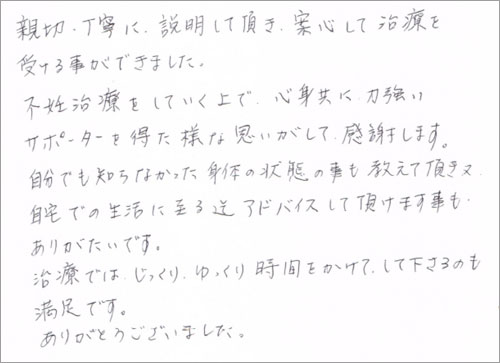 親切・丁寧に、説明して頂き、安心して治療を
受ける事ができました。
不妊治療をしていく上で、心身共に、力強い
サポーターを得た様な思いがして、感謝します。
自分でも知らなかった身体の状態の事も教えて頂き又、
自宅での生活に至る迄アドバイスして頂けます事も、
ありがたいです。
治療では、じっくり、ゆっくり時間をかけて、して下さるのも
満足です。
ありがとうございました。